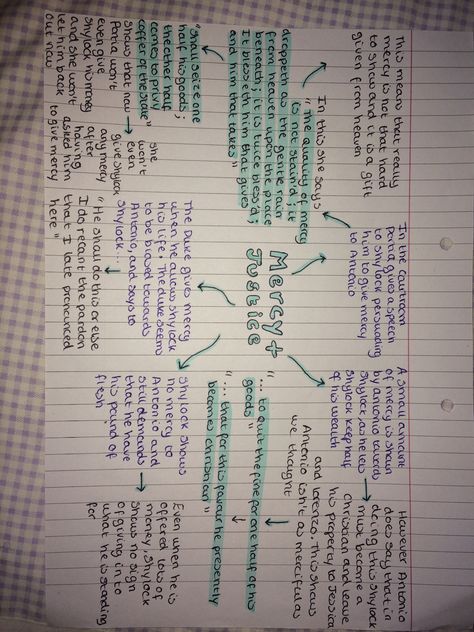 This mean that really
mercy is not that hard
to snow and it is a gift
given from heaven
In this she says
"The quality of mercy
is not strain'd; it
droppeth as the gentle rain
from heaven upon the place
beneath; it is twice bless'd;
It blesseth him that gives
and him that takes"
"shall seize one
half his goods;
the other half
comes to privy
coffer of the state"
shows that now
Portia won't
even give
Shylock his money
and she won't
let him back
out now
she
won't
even
give shylock
any mercy
after
having
asked him
to give mercy
In the courtroom
portia gives a speech
to shylock persuading
him to give mercy
to Antonio
Mercy +
Justice
The Duke gives mercy
when he allows shylock
his life. The duke seems
to be biased towards
Antonio, and says to
Shylock...
"He shall do this or else
I do recant the pardon
that I late pronounced
here"
A small amount
of mercy is shown
by antonio towards
Shylock, as he lets
Shylock keep half
of his wealth
However Antonio
does say that in
doing this shylock
must become a
Christian and leave
his property to Jessica
and Lorenzo. This shows
Antonio isn't as merciful as
we thought
"... to quit the fine for one half of his
goods"
"... that for this favour he presently
becomes christian"
Shylock shows
no mercy to
Antonio and
still demands
that he have
his pound of
flesh
Even when he is
offered lots of
money, shylock
shows no sign
of giving in to
what he is standing
for